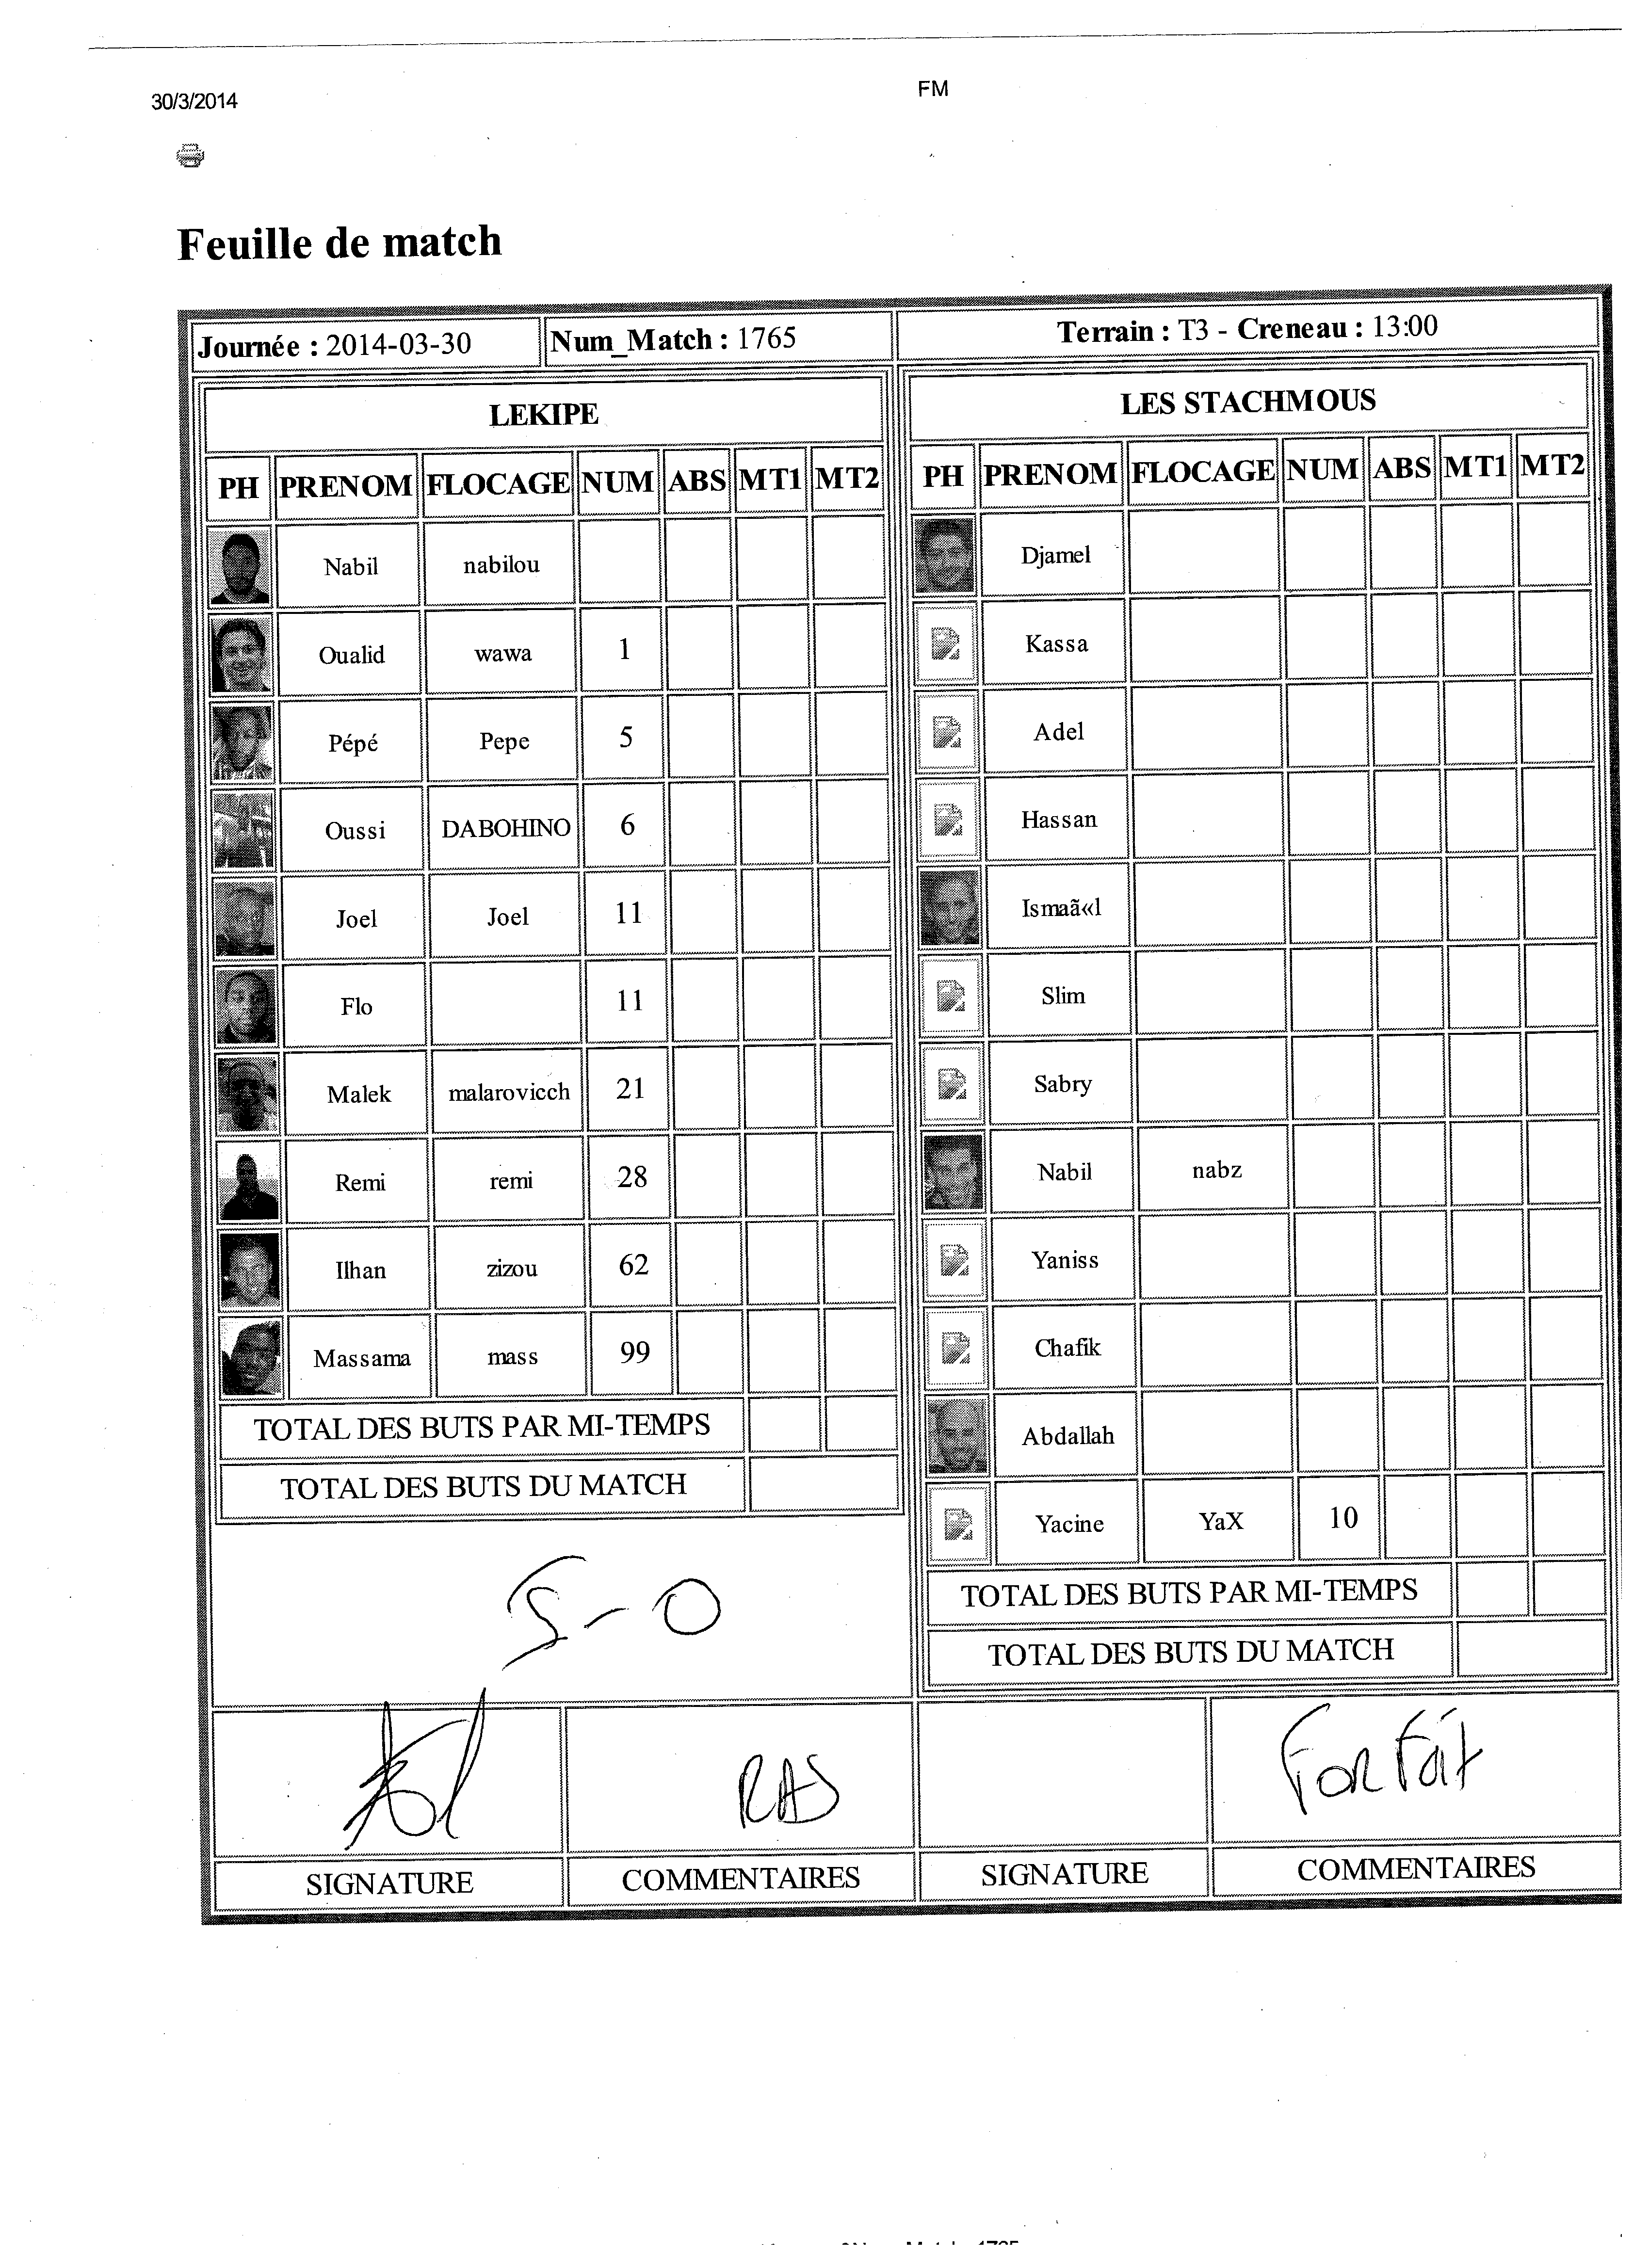 30/3/2014
FM
Feuille de match
Journée : 2014-03-30
Num_Match : 1765
Terrain : T3 - Creneau : 13:00
LEKIPE
PH PRENOM FLOCAGE NUM ABS MT1 MT2
Nabil nabilou
Oualid wawa 1
Pépé Pepe 5
Oussi DABOHINO 6
Joel Joel 11
Flo 11
Malek malarovicch 21
Remi remi 28
Ilhan zizou 62
Massama mass 99
TOTAL DES BUTS PAR MI-TEMPS
TOTAL DES BUTS DU MATCH
5-0
LES STACHMOUS
PH PRENOM FLOCAGE NUM ABS MT1 MT2
Djamel
Kassa
Adel
Hassan
Ismaã«l
Slim
Sabry
Nabil nabz
Yaniss
Chafik
Abdallah
Yacine YaX 10
TOTAL DES BUTS PAR MI-TEMPS
TOTAL DES BUTS DU MATCH
RAS
Forfait
SIGNATURE
COMMENTAIRES
SIGNATURE
COMMENTAIRES